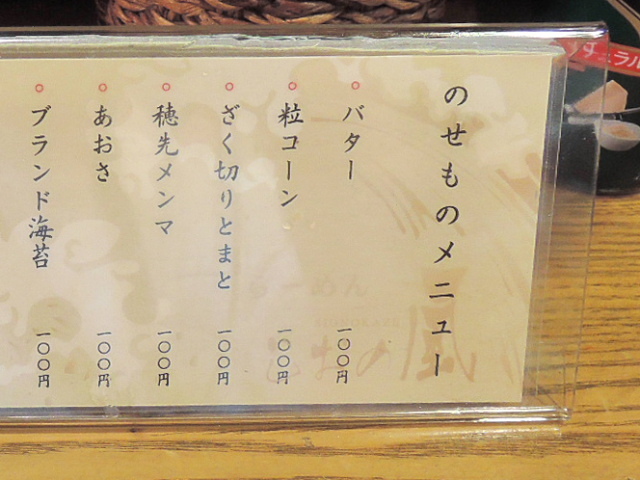 のせものメニュー
バター 一〇〇円
粒コーン 一〇〇円
ざく切りとまと 一〇〇円
穂先メンマ 一〇〇円
あおさ 一〇〇円
ブランド海苔 一〇〇円
らーめん
しおの風
チュラル